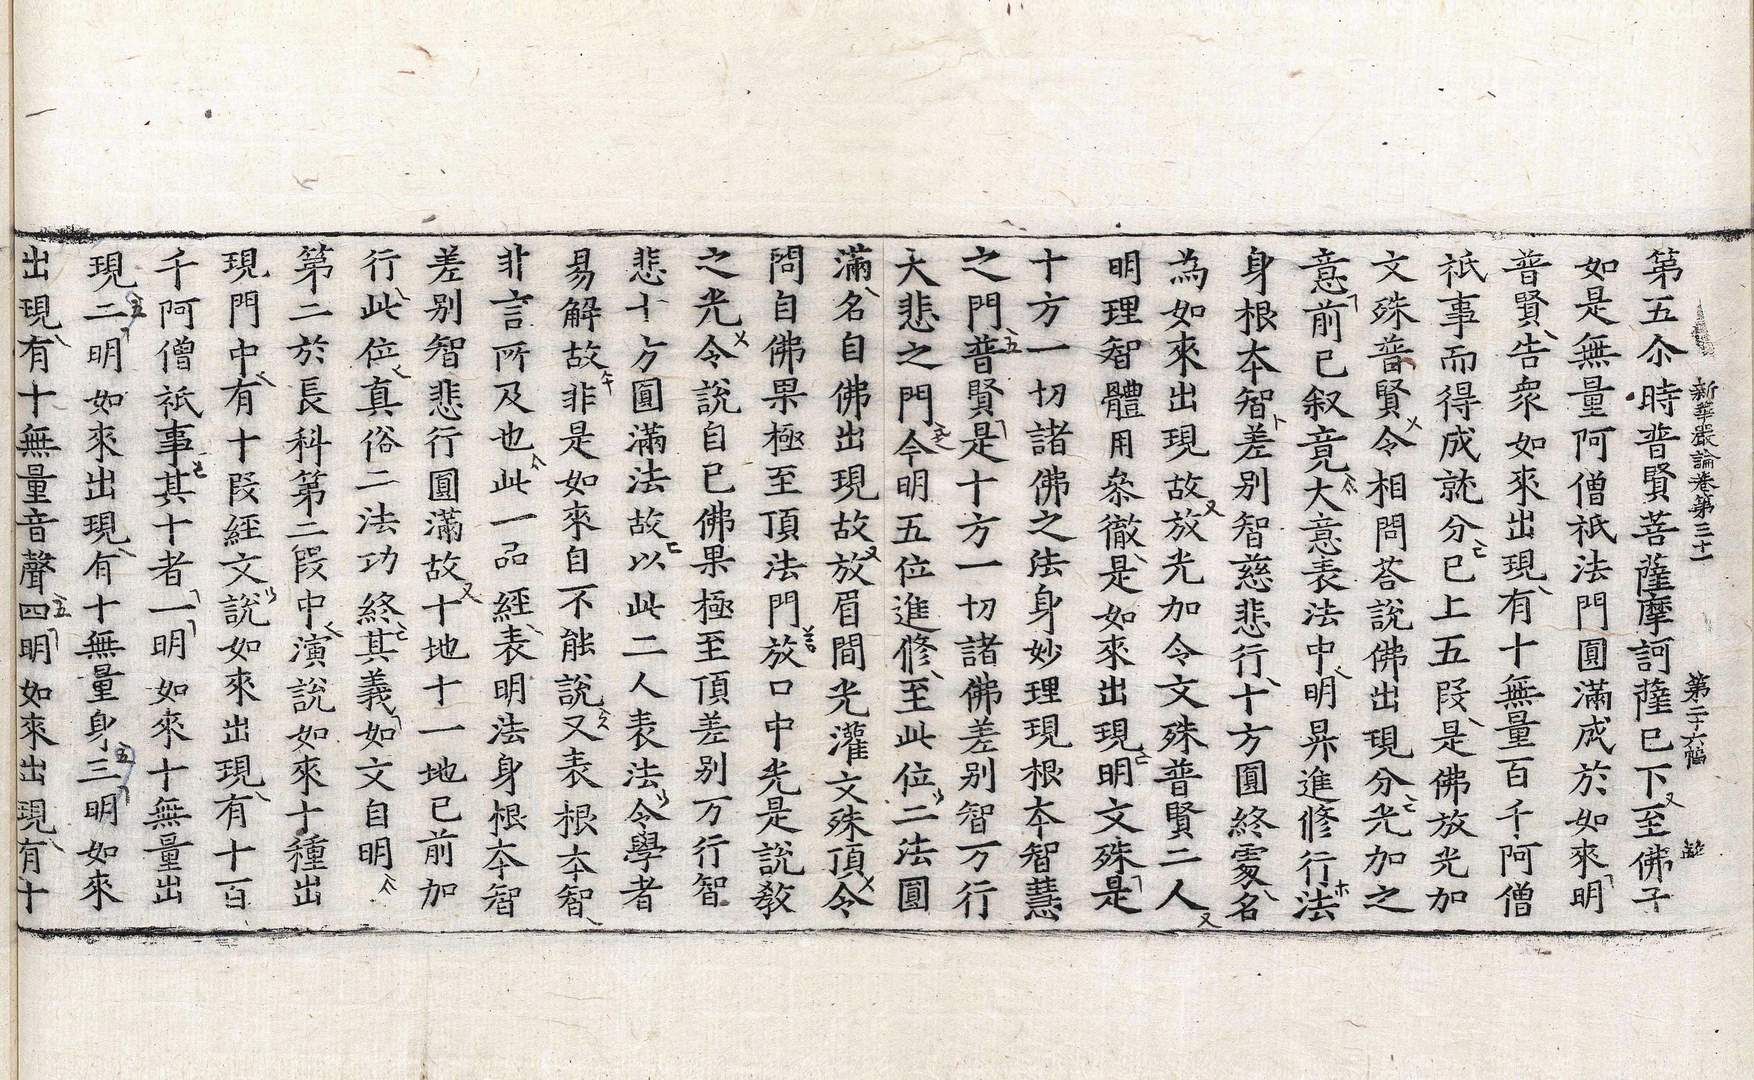 新華嚴論卷第三十一 第二十六幅
第五尒時普賢菩薩摩訶薩已下至佛子
如是無量阿僧祇法門圓滿成於如來明
普賢告衆如來出現有十無量百千阿僧
祇事而得成就分已上五段是佛放光加
文殊普賢令相問荅說佛出現分光加之
意前已叙竟大意表法中明昇進修行法
身根本智差別智慈悲行十方圓終處名
為如來出現故放光加令文殊普賢二人
明理智體用叅徹是如來出現明文殊是
十方一切諸佛之法身妙理現根本智慧
之門普賢是十方一切諸佛差別智万行
大悲之門今明五位進修至此位二法圓
滿名自佛出現故放眉間光灌文殊頂令
問自佛果極至頂法門放口中光是說教
之光令說自已佛果極至頂差別万行智
悲十方圓滿法故以此二人表法令學者
易解故非是如來自不能說又表根本智
非言所及也此一品經表明法身根本智
差別智悲行圓滿故十地十一地已前加
行此位真俗二法功終其義如文自明
第二於長科第二段中演說如來十種出
現門中有十段經文說如來出現有十百
千阿僧祇事其十者一明如來十無量出
現二明如來出現有十無量身三明如來
出現有十無量音聲四明如來出現有十